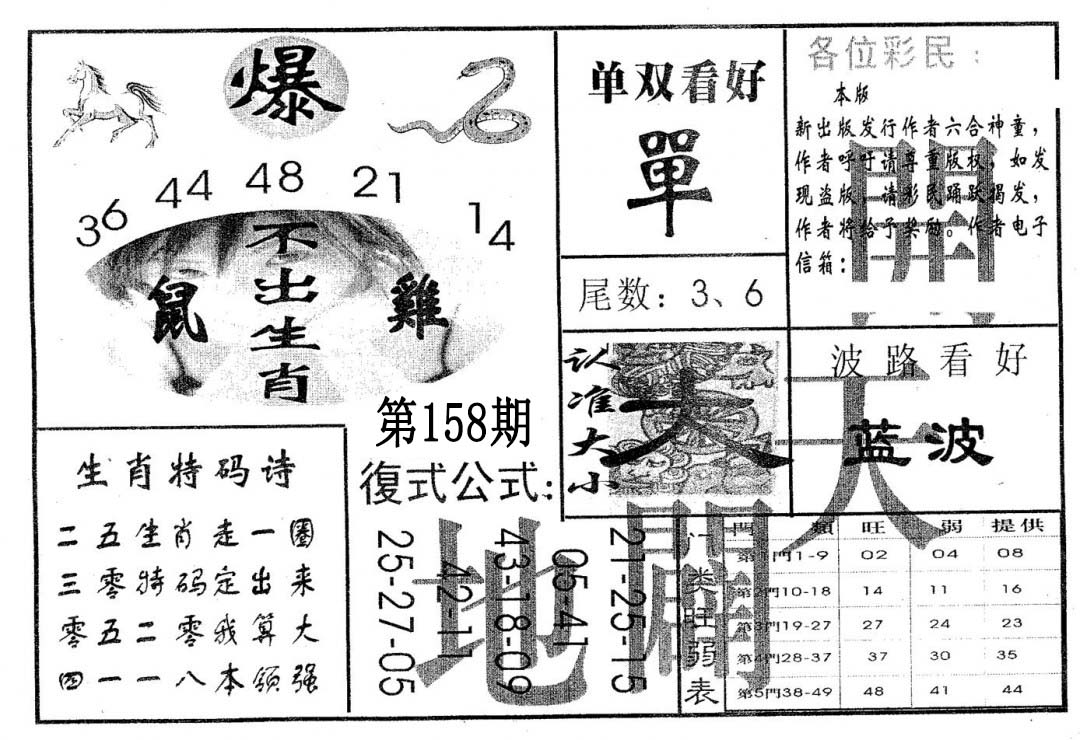 爆
36
44
48
21
14
不出生肖
鼠
雞
第158期
单双看好
單
尾数：3、6
认准大小
大
各位彩民：
本版
新出版发行作者六合神童，
作者呼吁请尊重版权，如发
现盗版，请彩民踊跃揭发，
作者将给予奖励。作者电子
信箱：
波路看好
蓝波
天
開
地
開
生肖特码诗
二五生肖走一圈
三零特码定出来
零五二零我算大
四一一八本领强
復式公式:
25-27-05
42-11
43-18-09
05-41
21-25-15
门类旺弱表
門 類 旺 弱 提供
第1門1-9 02 04 08
第2門10-18 14 11 16
第3門19-27 27 24 23
第4門28-37 37 30 35
第5門38-49 48 41 44